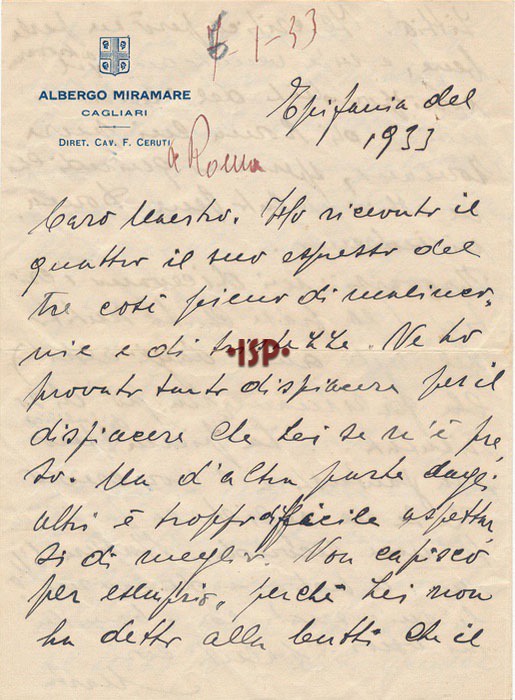 7-1-33
ALBERGO MIRAMARE
CAGLIARI
DIRET. CAV. F. CERUTI
a Roma
Epifania del
1933
Caro Maestro. Ho ricevuto il
quattro il suo espresso del
tre così pieno di malinco-
nie e di tristezze. Ne ho
ISP
provato tanto dispiacere per il
dispiacere che Lei se n'è pre
so. Ma d'altra parte dagli
altri è troppo difficile aspettar
si di meglio. Non capisco
per esempio, perché Lei non
ha detto alla che il